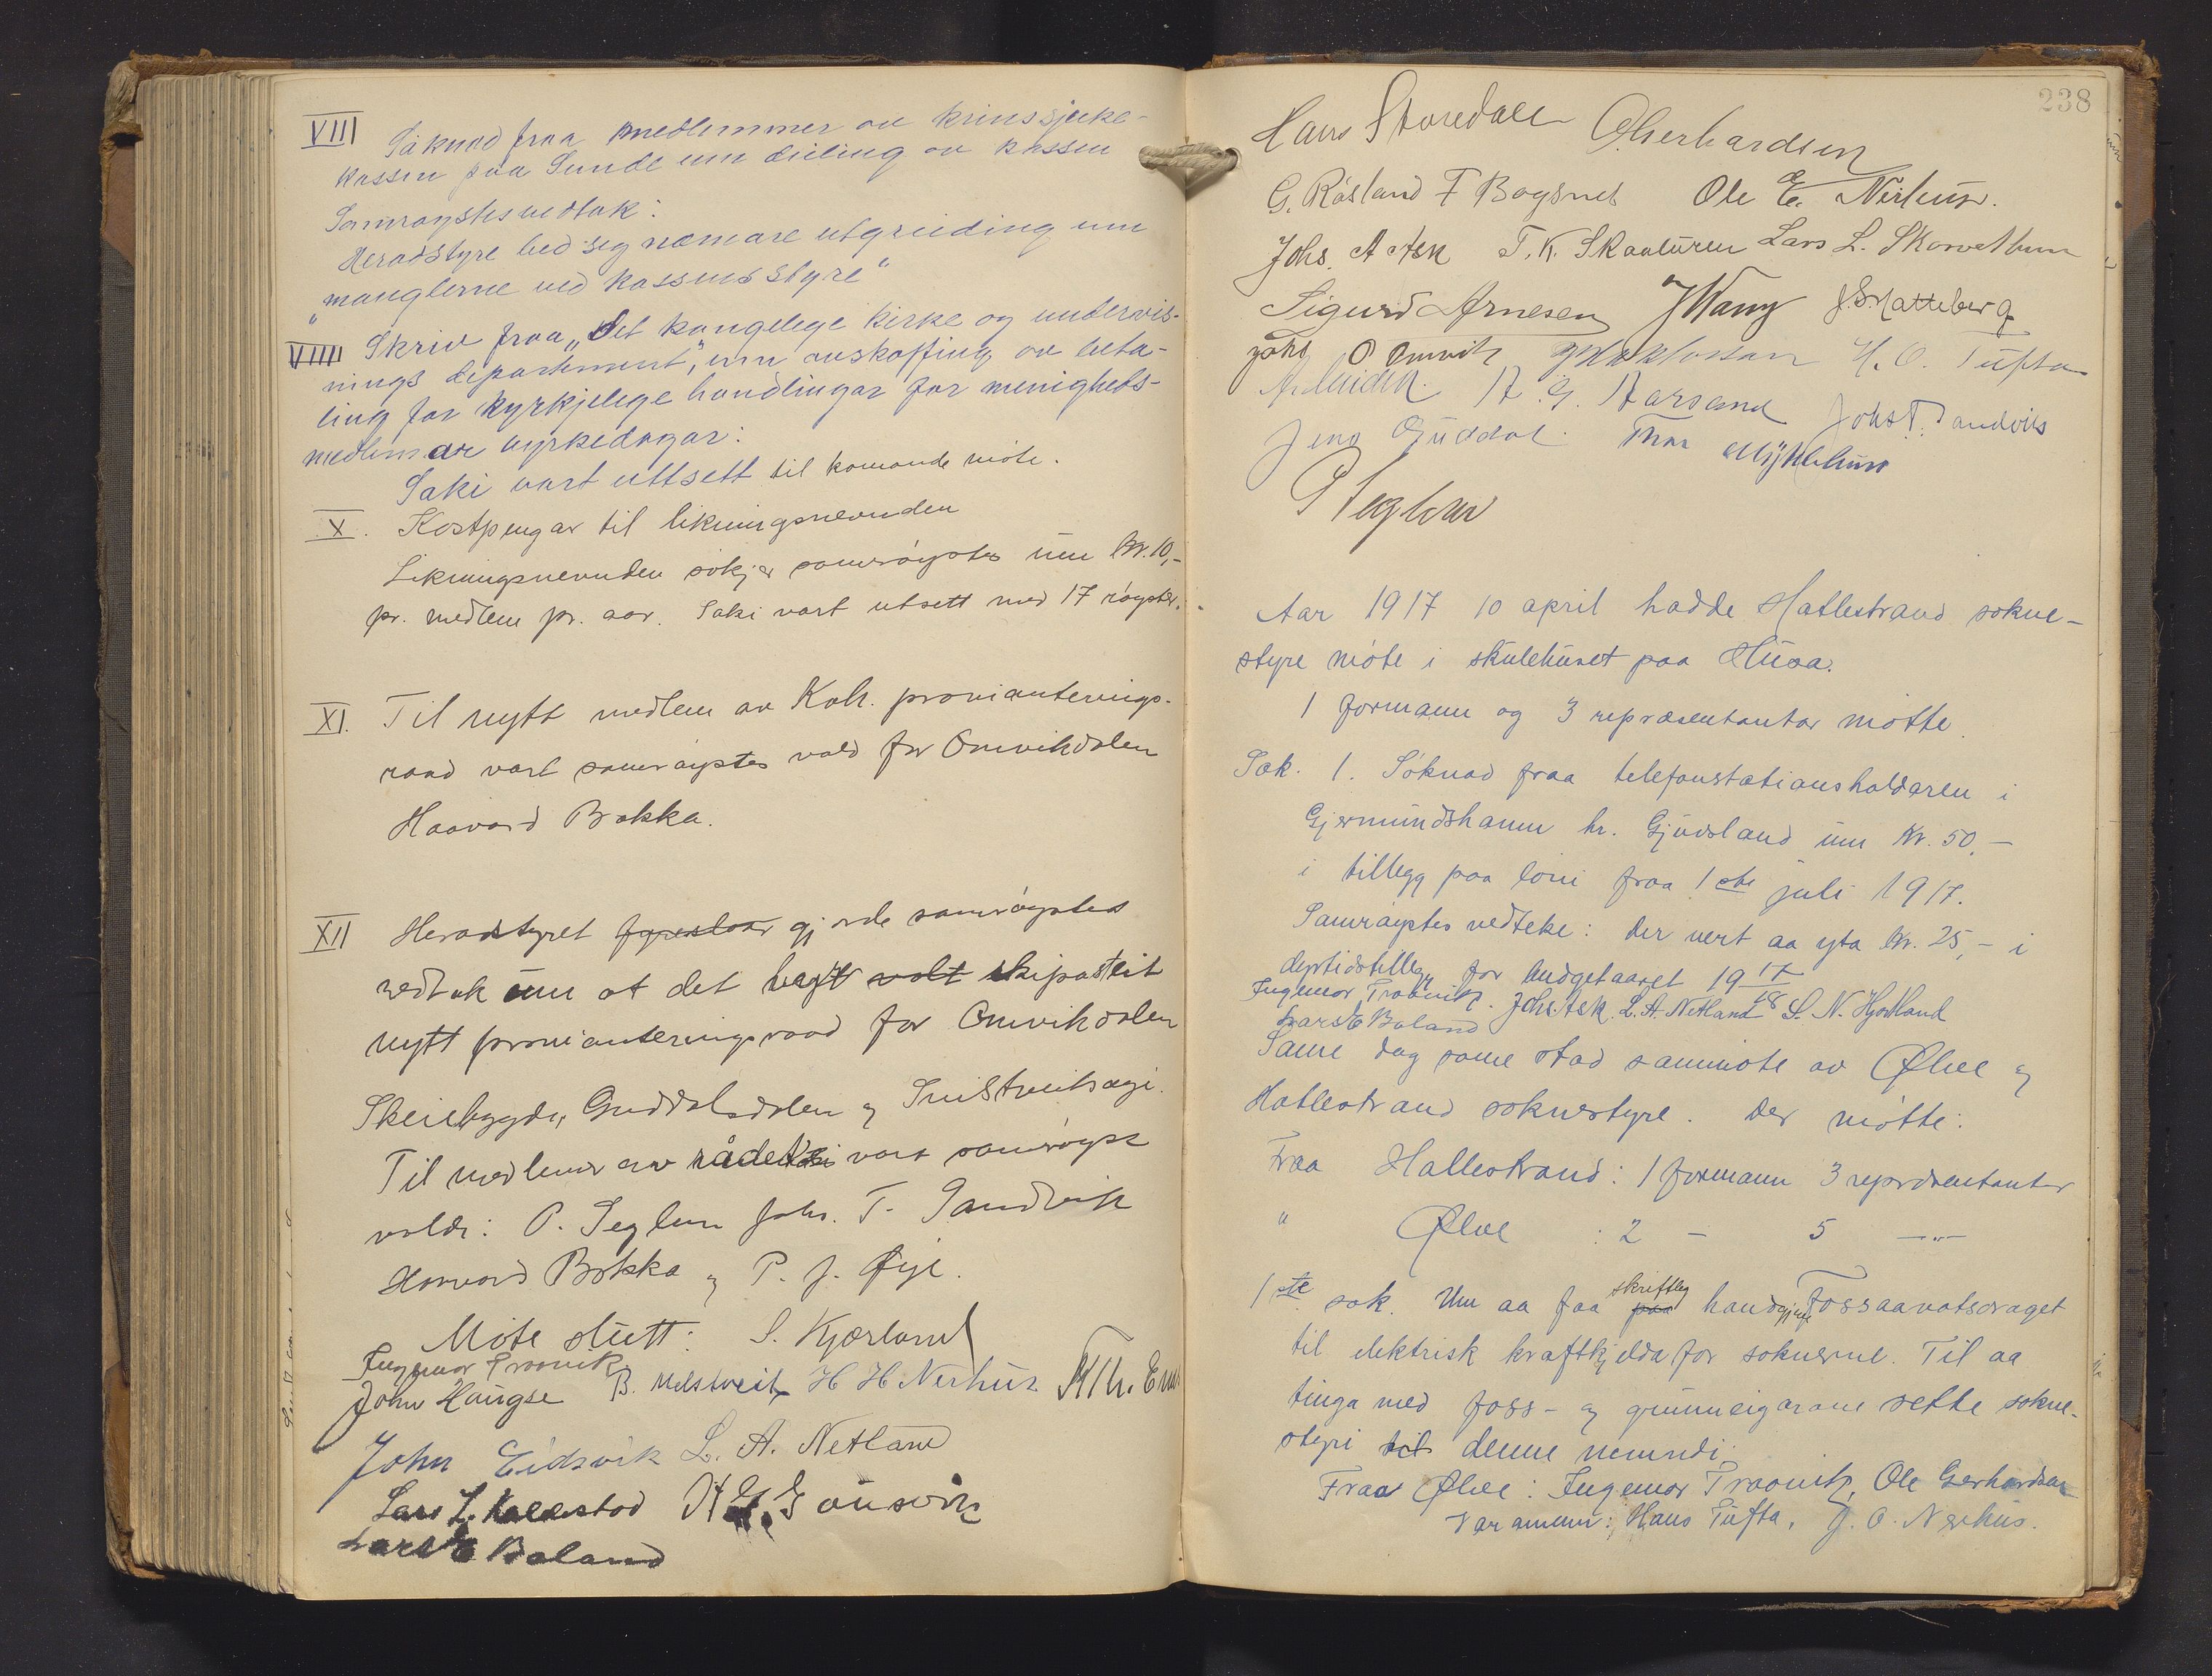 VIII Søknad fraa medlemmer av krinssjuke-
kassen paa Sunde um deiling av kassen
Samrøystes vedtak:
Heradstyre bed seg nemare utgreiding um
"manglerne ved kassens styre"
VIIII Skriv fraa "Det kongelege kirke og undervis-
nings departement", um avskaffing av beta-
ling for kyrkjelege handlingar for menigheds-
medlemar yrkedagar:
Saki vart uttsett til komande møte.
X. Kostpengar til likningsnevnden
Likningsnevnden søkjer samrøystes um kr. 10,-
pr. medlem pr. aar. Saki vart utsett med 17 røyster.
XI. Til nytt medlem av Kvh. provianterings-
raad vart samrøystes vald for Omvikdalen
Haavard Bokka.
XII Heradstyret fyreslaar gjorde samrøystes
vedtak um at det vert valt skipa eit
nytt provianteringsraad for Omvikdalen
Skeiebygda, Guddalsdalen og
Til medlemer av rådet vart samrøyst
valde: P. Seglem Johs. T. Sandvik
Haavard Bokka og P. J. Øye.
Møte slutt: S. Kjærland
Ingemor Traavik
John Haugse B. Melstveit H H Nerhus
John Eidsvik L. A. Netland
Lars L. Kaldestad
Lars E Baland
238
Hans Storedale O Gerhardsen
G. Røsland F Bogsnes Ole E. Nerhus.
Johs. A Ask T. K. Skaaluren Lars L. Skorvethun
Sigurd Arnesen J Vang J. S. Matteberg
Johs O Omvik H. O. Tufta
A. G. Aarsand Johs T. Sandvik
Jens Guddal. Myklebust
P Seglem
Aar 1917 10 april hadde Hatlestrand sokne-
styre møte i skulehuset paa Husa.
1 formann og 3 repræsentantar møtte.
Sak. 1. Søknad fraa telefonstationshaldaren i
Gjermundshamn hr. Gjuvsland um Kr. 50,-
i tillegg paa løni fraa 1ste juli 1917.
Samrøystes vedteke: Der vert aa yta kr. 25,- i
dyrtidstillegg for budgetaaret 1917/18
Ingemor Traavik. Johs. Ask. L. A. Netland S. N. Hjortland
Lars E Baland
Same dag same stad sammøte av Ølve og
Hatlestrand soknestyre. Der møtte:
Fraa Hatlestrand: 1 formann 3 repræsentanter
" Ølve : 2 - 5 -"-
1ste sak. Um aa faa paa skriftleg handgjeve Fossaavatsdraget
til elektrisk kraftkjelda for soknerne. Til aa
tinga med foss- og grunneigarane sette sokne-
styri til denne nemndi:
Fraa Ølve: Ingemor Traavik, Ole Gerhardsen
Varamenn: Hans Tufta, J. O. Nerhus.